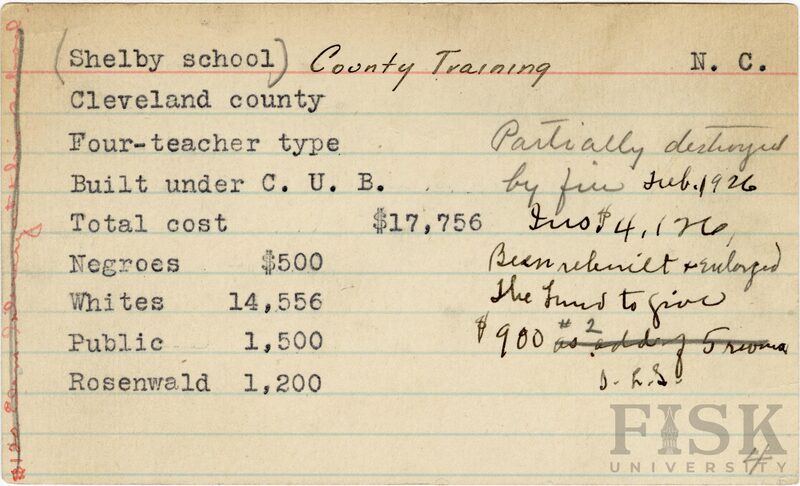 (Shelby school) County Training N. C.
Cleveland county
Four-teacher type
Partially destroyed
Built under C. U. B.
by fire Feb. 1926
Total cost $17,756
Ins $4,126,
Negroes $500
Been rebuilt & enlarged
Whites 14,556
The Fund to give
Public 1,500
$900 as #2 add of 5 rooms
Rosenwald 1,200
FISK
UNIVERSITY
4